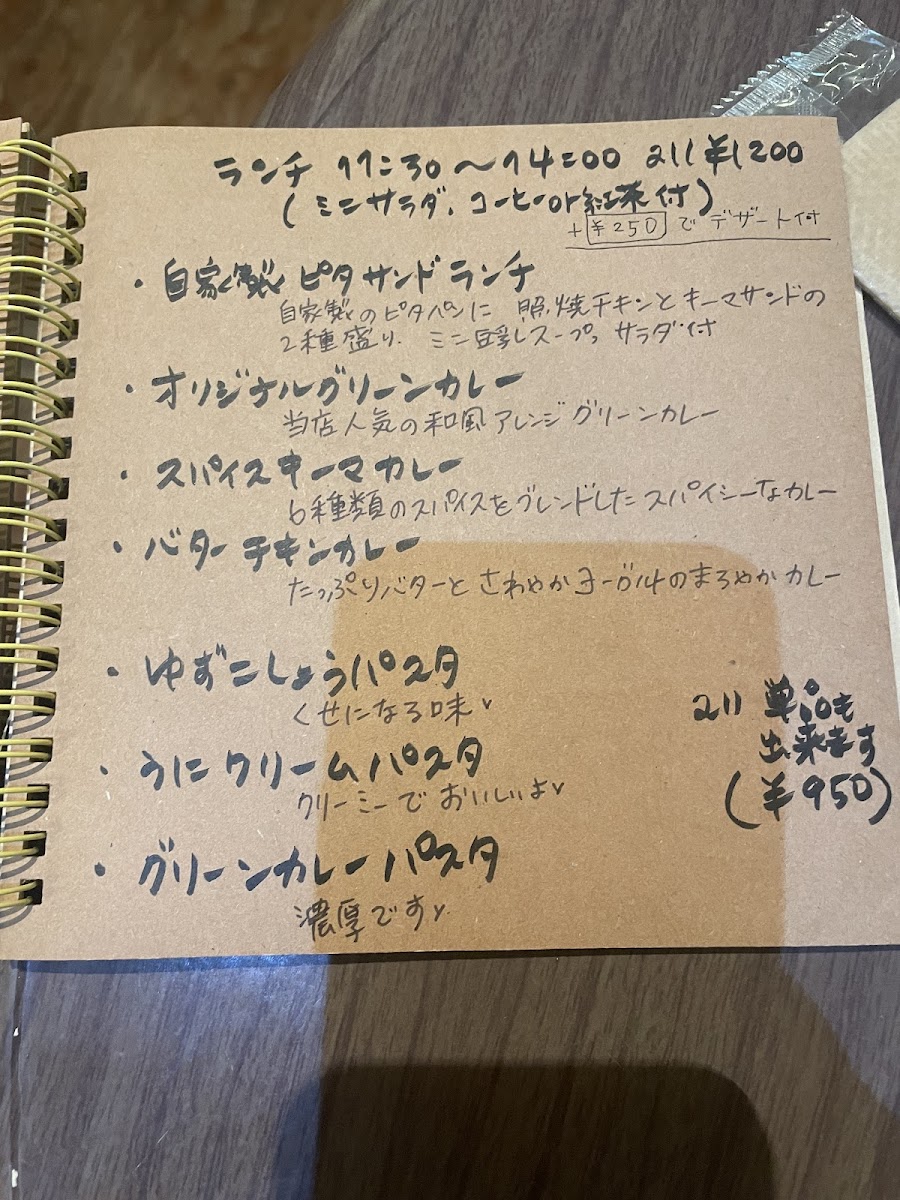 ランチ 11:30〜14:00 all ¥1200
(ミニサラダ、コーヒーor紅茶付)
+¥250でデザート付
・自家製ピタサンドランチ
自家製のピタパンに 照焼チキンとキーマサンドの
2種盛り、ミニ豆乳スープ。サラダ付
・オリジナルグリーンカレー
当店人気の和風アレンジグリーンカレー
・スパイスキーマカレー
6種類のスパイスをブレンドしたスパイシーなカレー
・バターチキンカレー
たっぷりバターとさわやかヨーグルトのまろやかカレー
・ゆずこしょうパスタ
くせになる味♡
・うにクリームパスタ
クリーミーでおいしいよ♡
・グリーンカレーパスタ
濃厚です♡
all 単品も
出来ます
(¥950)